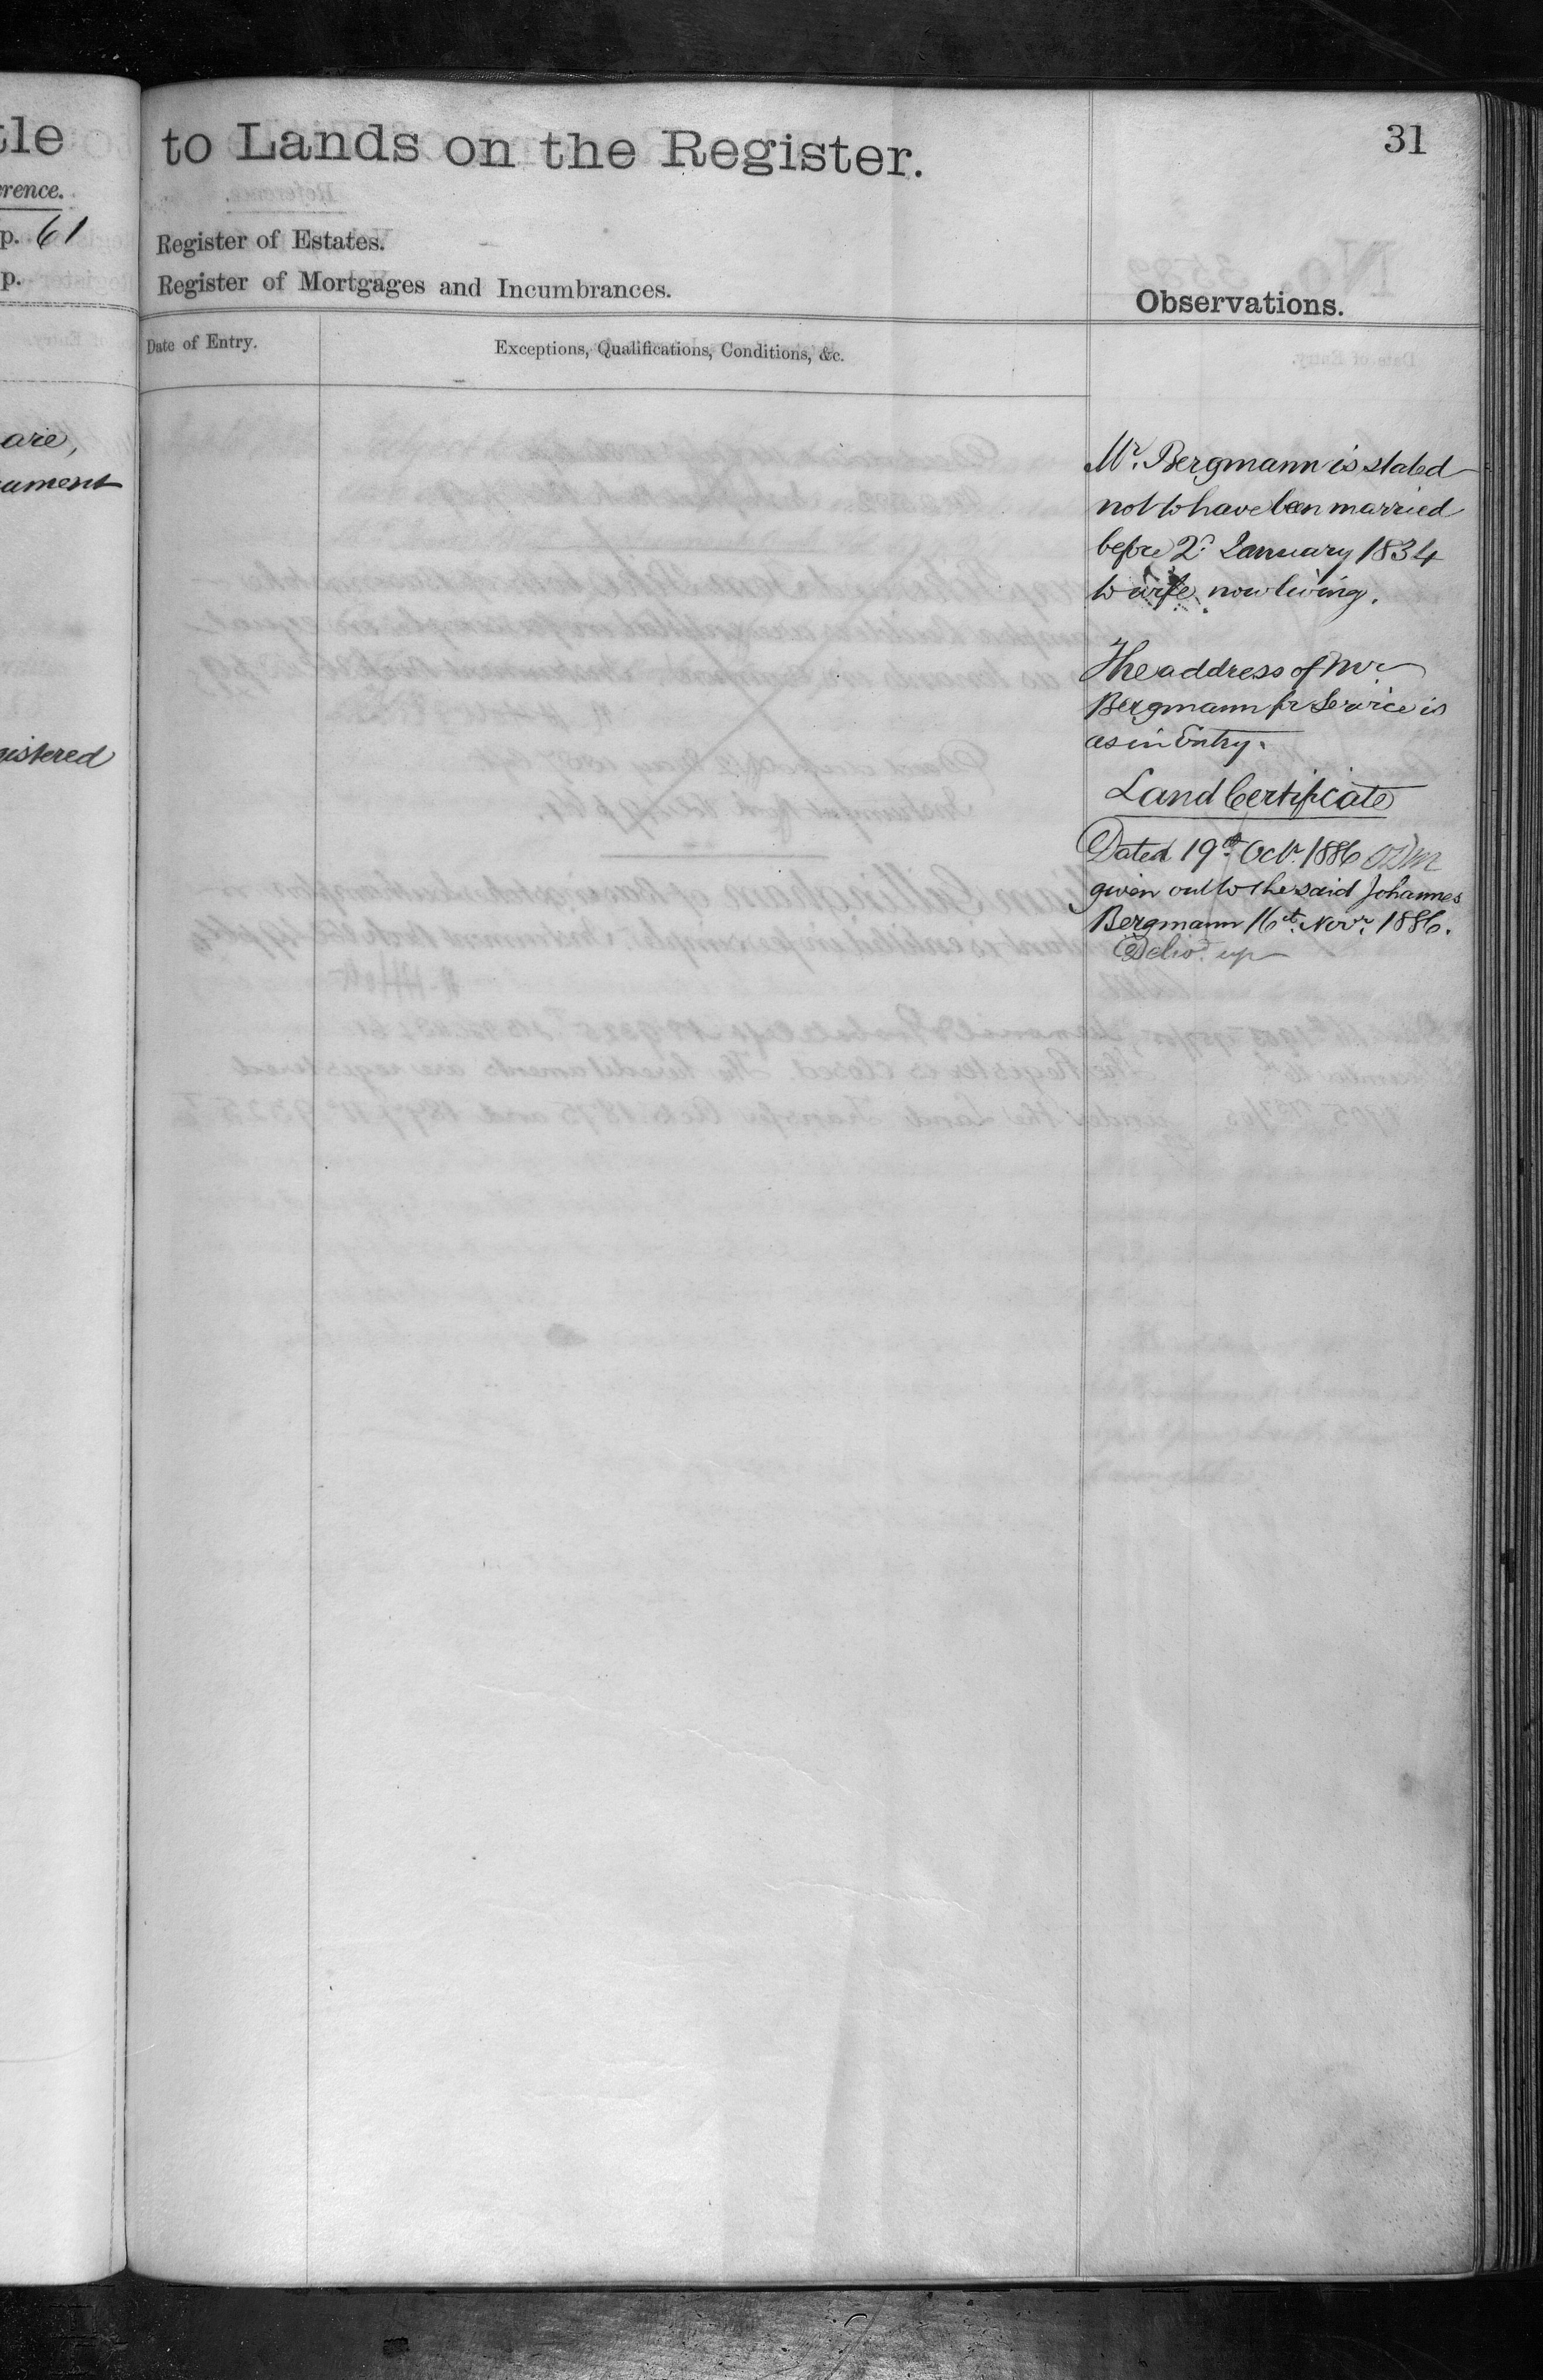 tle
erence.
p. 61
p.
are,
ument
gistered
to Lands on the Register.
31
Register of Estates.
Register of Mortgages and Incumbrances.
Observations.
Date of Entry.
Exceptions, Qualifications, Conditions, &c.
Mr. Bergmann is stated
not to have been married
before 2d. January 1834
to wife now living.
The address of Mr
Bergmann for Service is
as in Entry.
Land Certificate
Dated 19th Octr. 1886
given out to the said Johannes
Bergmann 16th. Novr. 1886.
Delivd. up